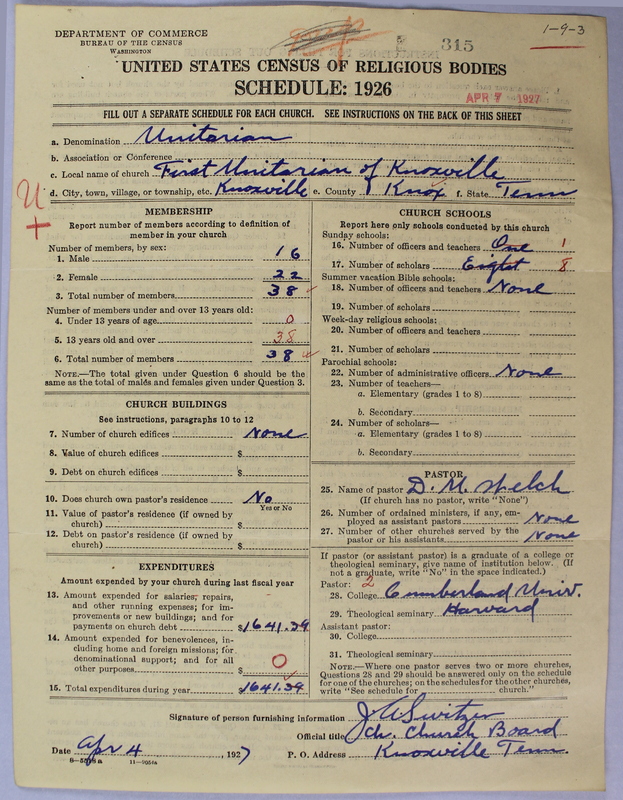 DEPARTMENT OF COMMERCE
BUREAU OF THE CENSUS
WASHINGTON
315
1-9-3
UNITED STATES CENSUS OF RELIGIOUS BODIES
SCHEDULE: 1926
APR 7 1927
FILL OUT A SEPARATE SCHEDULE FOR EACH CHURCH. SEE INSTRUCTIONS ON THE BACK OF THIS SHEET
a. Denomination Unitarian
b. Association or Conference
c. Local name of church First Unitarian of Knoxville
d. City, town, village, or township, etc. Knoxville e. County Knox f. State Tenn
U
+
MEMBERSHIP
Report number of members according to definition of
member in your church
Number of members, by sex:
1. Male 16
2. Female 22
3. Total number of members 38
Number of members under and over 13 years old:
4. Under 13 years of age 0
5. 13 years old and over 38
6. Total number of members 38
NOTE.—The total given under Question 6 should be
same as the total of males and females given under Question 3.
CHURCH BUILDINGS
See instructions, paragraphs 10 to 12
7. Number of church edifices None
8. Value of church edifices $
9. Debt on church edifices $
10. Does church own pastor's residence No
Yes or No
11. Value of pastor's residence (if owned by
church) $
12. Debt on pastor's residence (if owned by
church) $
EXPENDITURES
Amount expended by your church during last fiscal year
13. Amount expended for salaries, repairs,
and other running expenses; for im-
provements or new buildings; and for
payments on church debt $1641.39
14. Amount expended for benevolences, in-
cluding home and foreign missions; for
denominational support; and for all
other purposes $ 0
15. Total expenditures during year $1641.39
CHURCH SCHOOLS
Report here only schools conducted by this church
Sunday schools:
16. Number of officers and teachers One 1
17. Number of scholars Eight 8
Summer vacation Bible schools:
18. Number of officers and teachers None
19. Number of scholars
Week-day religious schools:
20. Number of officers and teachers
21. Number of scholars
Parochial schools:
22. Number of administrative officers None
23. Number of teachers—
a. Elementary (grades 1 to 8)
b. Secondary
24. Number of scholars—
a. Elementary (grades 1 to 8)
b. Secondary
PASTOR
25. Name of pastor D. M. Welch
(If church has no pastor, write "None")
26. Number of ordained ministers, if any, em-
ployed as assistant pastors None
27. Number of other churches served by the
pastor or his assistants None
If pastor (or assistant pastor) is a graduate of a college or
theological seminary, give name of institution below. (If
not a graduate, write "No" in the space indicated.)
Pastor: 2
28. College Cumberland Univ.
29. Theological seminary Harvard
Assistant pastor:
30. College
31. Theological seminary
NOTE.—Where one pastor serves two or more churches,
Questions 28 and 29 should be answered only on the schedule
for one of the churches; on the schedules for the other churches,
write "See schedule for church."
Signature of person furnishing information J A Switzer
Official title Ch. Church Board
Date Apr 4, 1927 P. O. Address Knoxville Tenn.
8-5518a 11-9054a